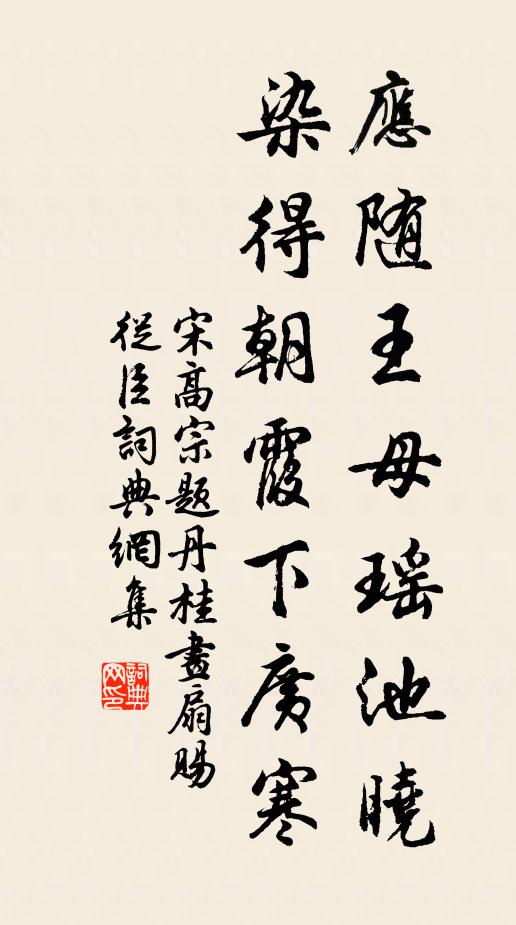 應随王母瑶池曉
染得朝霞下廣寒
宋高宗题丹桂畫扇賜
從臣詞典網集
詞典
网印